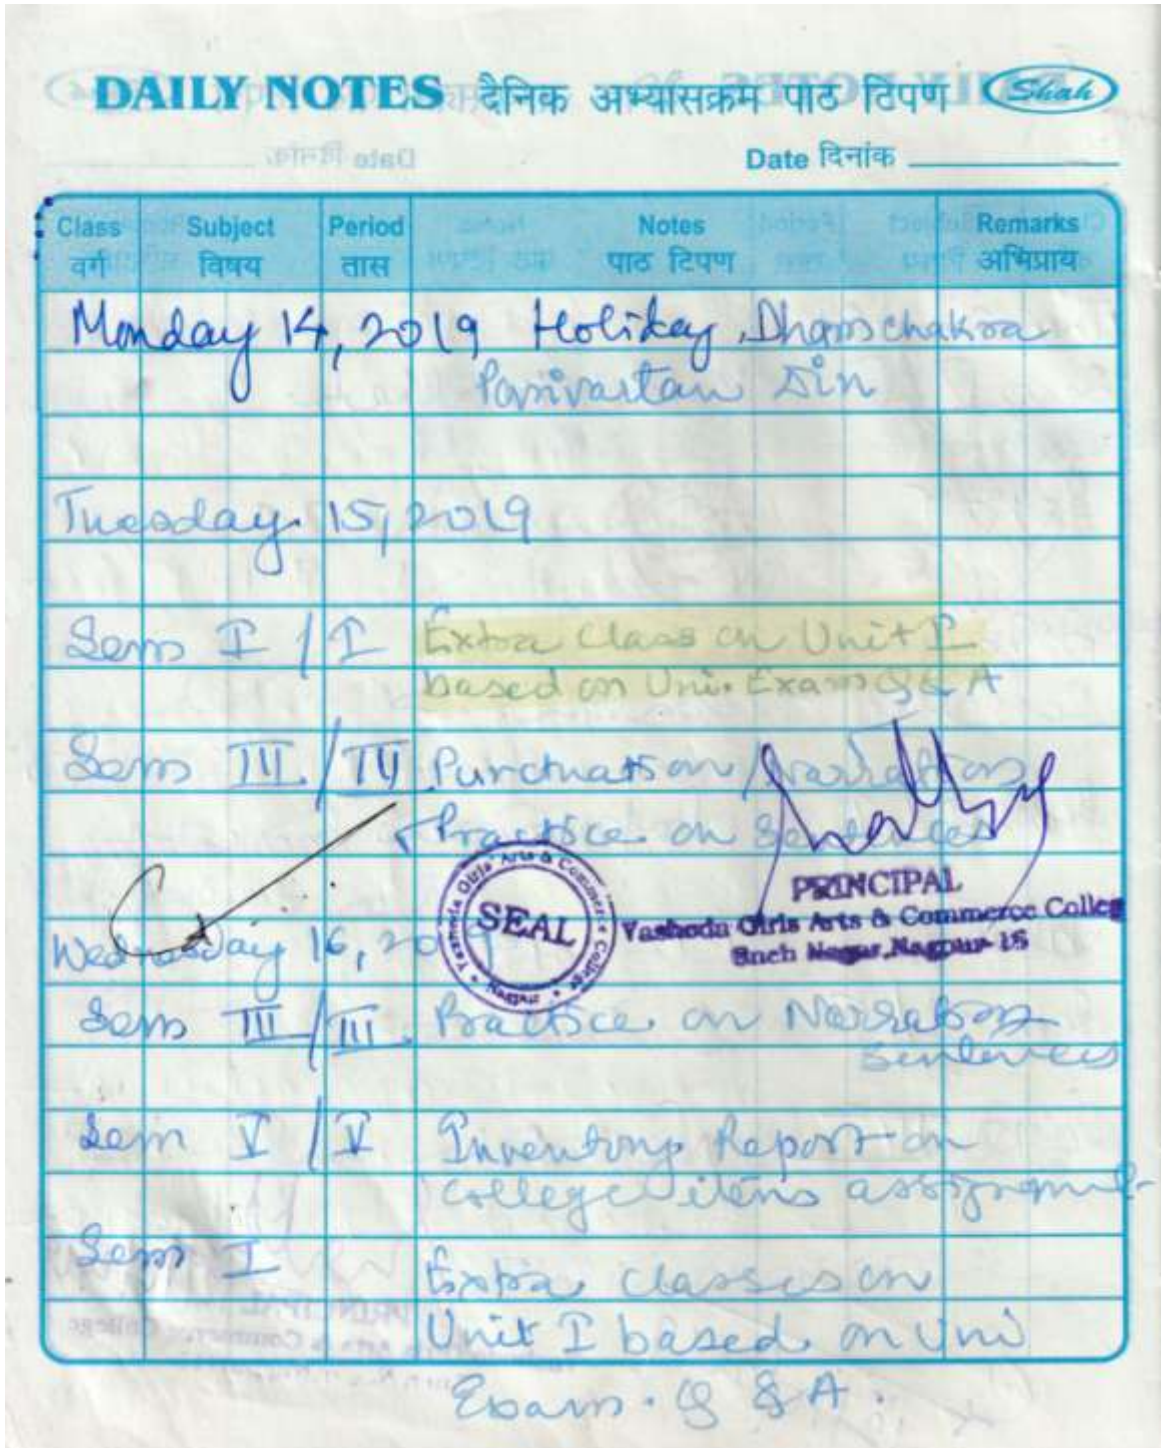 DAILY NOTES दैनिक अभ्यासक्रम पाठ टिपण Shah
Date दिनांक
Class Subject Period Notes Remarks
वर्ग विषय तास पाठ टिपण अभिप्राय
Monday 14, 2019 Holiday, Dhamschakra
Parivartan Din
Tuesday 15, 2019
Sem I / I Extra Class on Unit I
based on Uni. Exam Q & A
Sem III / IV Punctuation / Narration
Practice on Sentences
PRINCIPAL
Yashoda Girls Arts & Commerce College
Sneh Nagar, Nagpur-15
Yashoda Girls' Arts & Commerce College
SEAL
Nagpur
Wednesday 16, 2019
Sem III / III Practice on Narration
sentences
Sem V / V Inventory Report on
college items assignment
Sem I Extra classes on
Unit I based on Uni
Exam. Q & A.